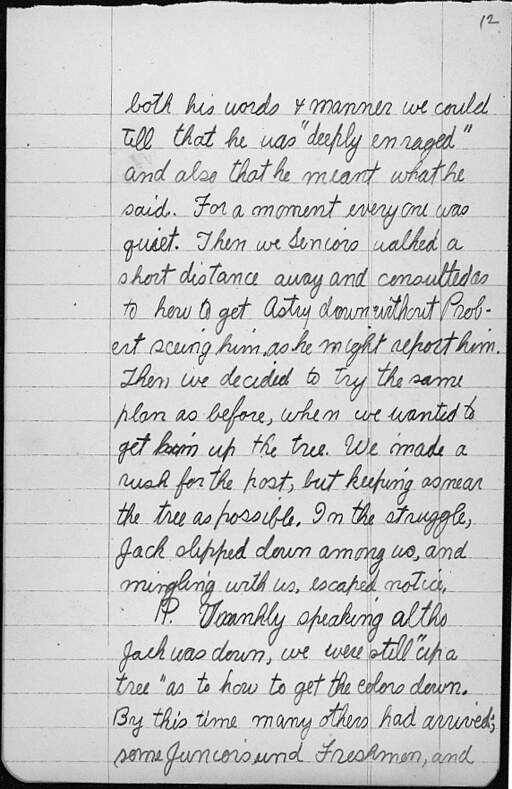 12
both his words & manner we could
tell that he was "deeply enraged"
and also that he meant what he
said. For a moment every one was
quiet. Then we Seniors walked a
short distance away and consulted as
to how to get Astry down without Prob-
ert seeing him, as he might report him.
Then we decided to try the same
plan as before, when we wanted to
get him up the tree. We made a
rush for the post, but keeping as near
the tree as possible. In the struggle,
Jack slipped down among us, and
mingling with us, escaped notice.
P. Frankly speaking altho
Jack was down, we were still "up a
tree" as to how to get the colors down.
By this time many others had arrived;
some Juniors and Freshmen, and